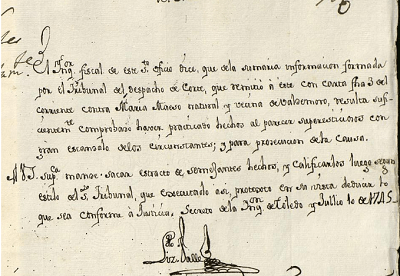 El Ynq.or fiscal de este S.to Oficio dice, que de la sumaria informacion formada
por el Tribunal del Despacho de Corte, que remitio a este con carta fha 3 del
corriente contra Maria Maeso natural y vecina de Valdemoro, resulta sufi-
cientem.te comprobado haver practicado hechos al parecer supersticiosos con
gran escandalo de los circunstantes; y para prosecucion de la causa.
A V.S. Sup.ca mande sacar extracto de semejantes hechos, y Calificarlos luego segun
estilo del S.to Tribunal, que executado asi, protexto en su vista deducir lo
que sea conforme a Justicia. Secreto de la Ynq.on de Toledo y Jullio 10 de 1745